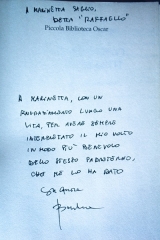 A MARINETTA SAGGIO,
DETTA "RAFFAELLO"
Piccola Biblioteca Oscar
A MARINETTA, CON UN
RINGRAZIAMENTO LUNGO UNA
VITA, PER AVERE SEMPRE
INTERPRETATO IL MIO VOLTO
IN MODO PIÙ BENEVOLO
DELLO STESSO PADRETERNO,
CHE ME LO HA DATO
Con amore